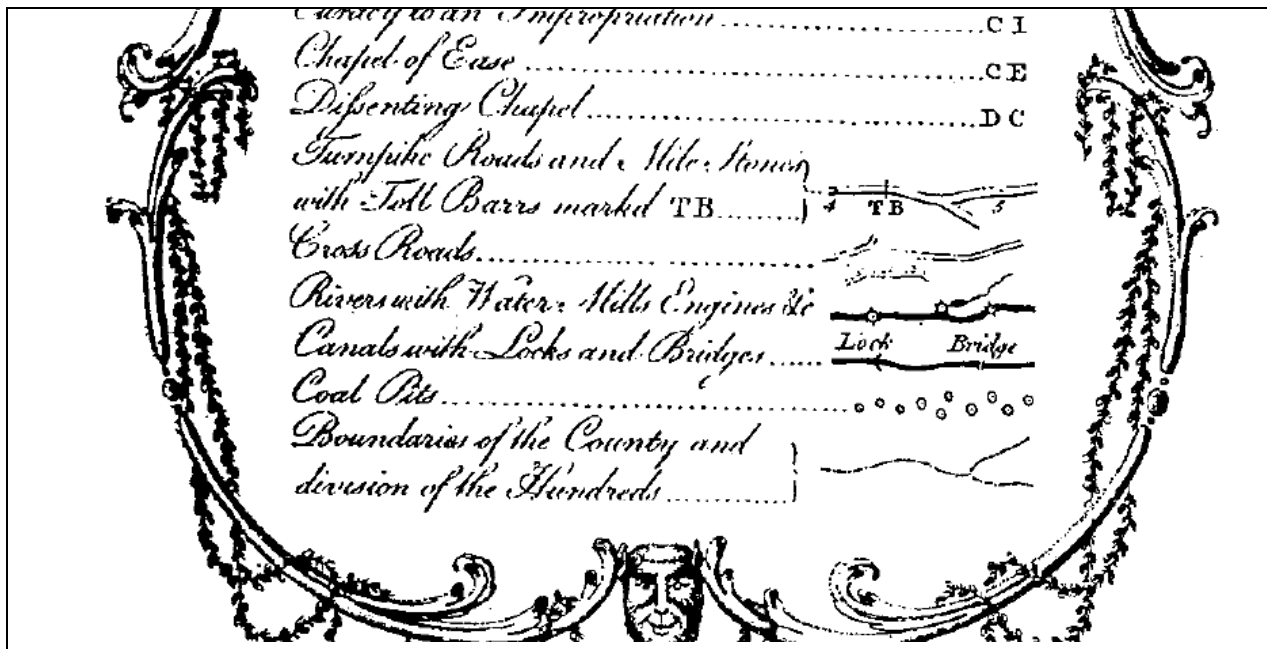 Curacy to an Impropriation ........ C I
Chapel of Ease ........ C E
Dissenting Chapel ........ D C
Turnpike Roads and Mile Stones
with Toll Barrs markd TB ........ 4 TB 5
Cross Roads ........
Rivers with Water Mills Engines &c
Canals with Locks and Bridges ...... Lock Bridge
Coal Pits ........
Boundaries of the County and
division of the Hundreds ........